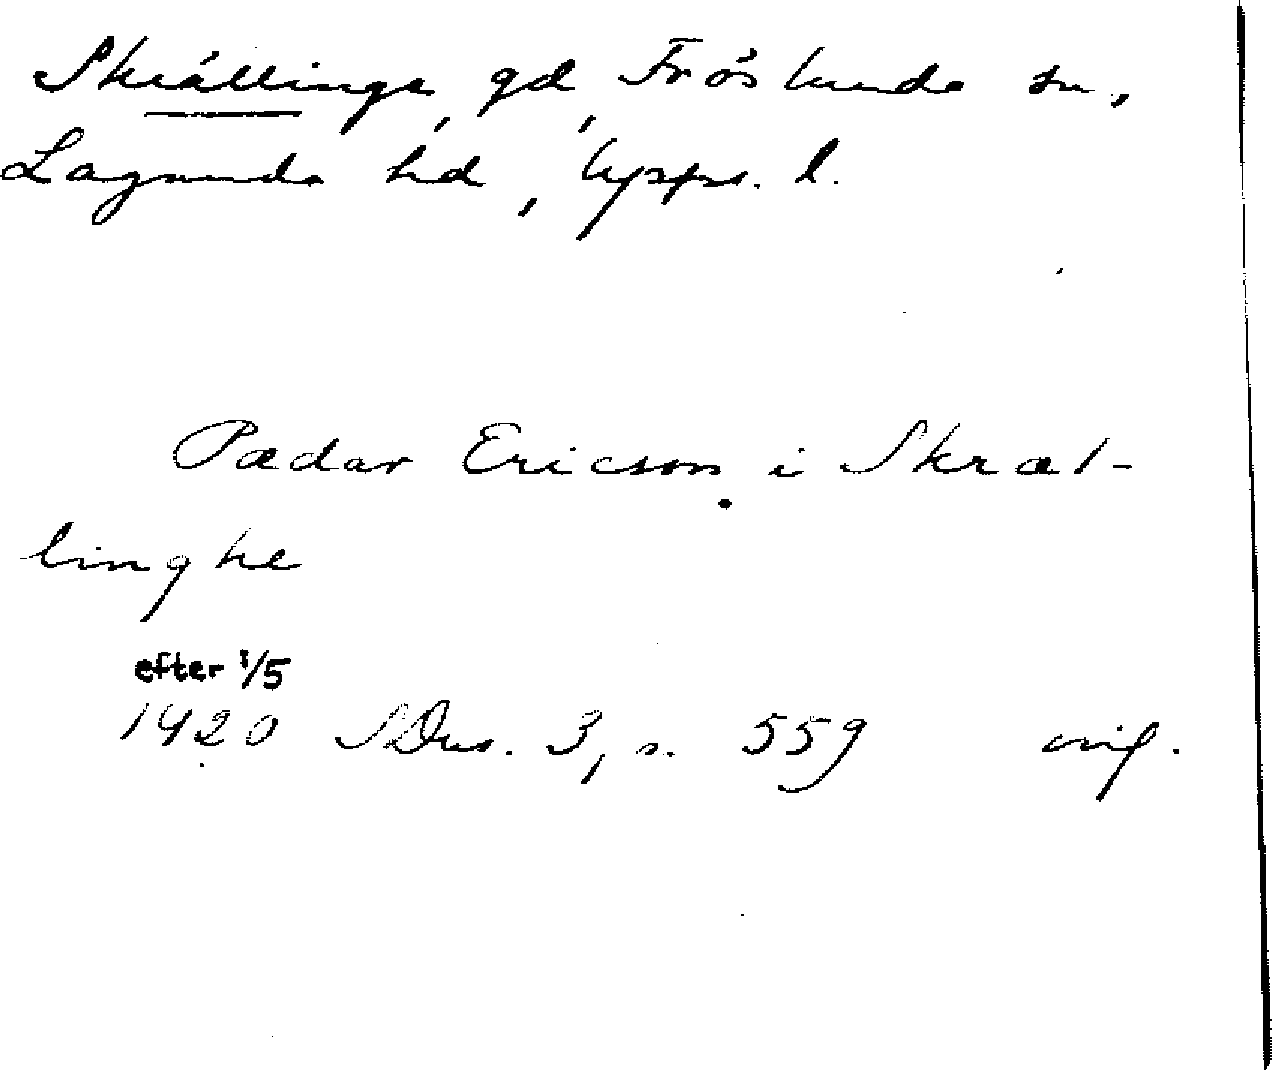 Skrällinge, gd, Fröslunda sn,
Lagunda hd, Upps. l.
Pædar Ericson i Skræl-
linghe
efter 1/5
1420 SDns. 3, s. 559 orig.